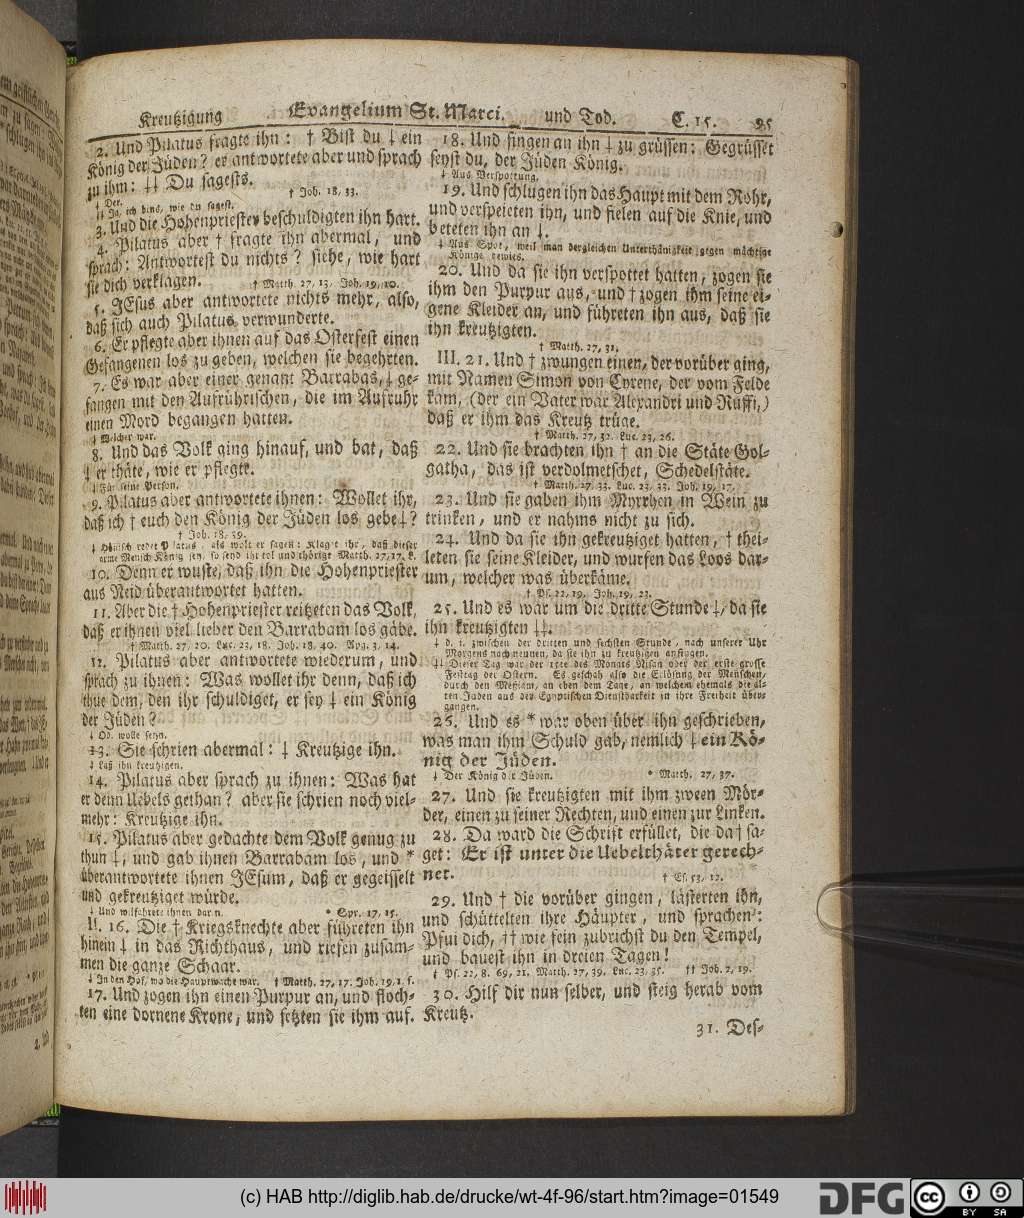 Kreutzigung Evangelium St. Marci. und Tod. C. 15. 95
2. Und Pilatus fragte ihn: † Bist du ⸸ ein
König der Jüden? er antwortete aber und sprach
zu ihm: ⸸⸸ Du sagests. † Joh. 18, 33.
⸸ Der.
⸸⸸ Ja, ich bins, wie du sagest.
3. Und die Hohenpriester beschuldigten ihn hart.
4. Pilatus aber † fragte ihn abermal, und
sprach: Antwortest du nichts? siehe, wie hart
sie dich verklagen. † Matth. 27, 13. Joh. 19, 10.
5. JEsus aber antwortete nichts mehr, also,
daß sich auch Pilatus verwunderte.
6. Er pflegte aber ihnen auf das Osterfest einen
Gefangenen los zu geben, welchen sie begehrten.
7. Es war aber einer genant Barrabas, ⸸ ge-
fangen mit den Aufrührischen, die im Aufruhr
einen Mord begangen hatten.
⸸ Welcher war.
8. Und das Volk ging hinauf, und bat, daß
⸸ er thäte, wie er pflegte.
⸸ Für seine Person.
9. Pilatus aber antwortete ihnen: Wollet ihr,
daß ich † euch den König der Jüden los gebe ⸸?
† Joh. 18, 39.
⸸ Hönisch redet Pilatus, als wolt er sagen: Klagt ihr, daß dieser
arme Mensch König sey, so seyd ihr tol und thörigt Matth. 27, 17. k.
10. Denn er wuste, daß ihn die Hohenpriester
aus Neid überantwortet hatten.
11. Aber die † Hohenpriester reitzeten das Volk,
daß er ihnen viel lieber den Barrabam los gäbe.
† Matth. 27, 20. Luc. 23, 18. Joh. 18, 40. Apg. 3, 14.
12. Pilatus aber antwortete wiederum, und
sprach zu ihnen: Was wollet ihr denn, daß ich
thue dem, den ihr schuldiget, er sey ⸸ ein König
der Jüden?
⸸ Od. wolle seyn.
13. Sie schrien abermal: ⸸ Kreutzige ihn.
⸸ Laß ihn kreutzigen.
14. Pilatus aber sprach zu ihnen: Was hat
er denn Uebels gethan? aber sie schrien noch viel-
mehr: Kreutzige ihn.
15. Pilatus aber gedachte dem Volk genug zu
thun ⸸, und gab ihnen Barrabam los, und *
überantwortete ihnen JEsum, daß er gegeisselt
und gekreutziget würde.
⸸ Und wilfahrete ihnen darin. * Spr. 17, 15.
II. 16. Die † Kriegsknechte aber führeten ihn
hinein ⸸ in das Richthaus, und riefen zusam-
men die ganze Schaar.
⸸ In den Hof, wo die Hauptwache war. † Matth. 27, 17. Joh. 19, 1. f.
17. Und zogen ihn einen Purpur an, und floch-
ten eine dornene Krone, und setzten sie ihm auf.
18. Und fingen an ihn ⸸ zu grüssen: Gegrüsset
seyst du, der Jüden König.
⸸ Aus Verspottung.
19. Und schlugen ihn das Haupt mit dem Rohr,
und verspeieten ihn, und fielen auf die Knie, und
beteten ihn an ⸸.
⸸ Aus Spot, weil man dergleichen Unterthänigkeit gegen mächtige
Könige bewies.
20. Und da sie ihn verspottet hatten, zogen sie
ihm den Purpur aus, und † zogen ihm seine ei-
gene Kleider an, und führeten ihn aus, daß sie
ihn kreutzigten.
† Matth. 27, 31.
III. 21. Und † zwungen einen, der vorüber ging,
mit Namen Simon von Cyrene, der vom Felde
kam, (der ein Vater war Alexandri und Ruffi,)
daß er ihm das Kreutz trüge.
† Matth. 27, 32. Luc. 23, 26.
22. Und sie brachten ihn † an die Stäte Gol-
gatha, das ist verdolmetschet, Schedelstäte.
† Matth. 27, 33. Luc. 23, 33. Joh. 19, 17.
23. Und sie gaben ihm Myrrhen in Wein zu
trinken, und er nahms nicht zu sich.
24. Und da sie ihn gekreutziget hatten, † thei-
leten sie seine Kleider, und wurfen das Loos dar-
um, welcher was überkäme.
† Ps. 22, 19. Joh. 19, 23.
25. Und es war um die dritte Stunde ⸸, da sie
ihn kreutzigten ⸸⸸.
⸸ d. i. zwischen der dritten und sechsten Stunde, nach unserer Uhr
Morgens nach neunen, da sie ihn zu kreutzigen anfingen.
⸸⸸ Dieser Tag war der 15te des Monats Nisan oder der erste grosse
Festtag der Ostern. Es geschah also die Erlösung der Menschen,
durch den Meßiam, an eben dem Tage, an welchem ehemals die al-
ten Jüden aus der Egyptischen Dienstbarkeit in ihre Freiheit über-
gangen.
26. Und es * war oben über ihn geschrieben,
was man ihm Schuld gab, nemlich ⸸ ein Kö-
nig der Jüden.
⸸ Der König der Jüden. * Matth. 27, 37.
27. Und sie kreutzigten mit ihm zween Mör-
der, einen zu seiner Rechten, und einen zur Linken.
28. Da ward die Schrift erfüllet, die da † sa-
get: Er ist unter die Uebelthäter gerech-
net. † Es. 53, 12.
29. Und † die vorüber gingen, lästerten ihn,
und schüttelten ihre Häupter, und sprachen:
Pfui dich, †† wie fein zubrichst du den Tempel,
und bauest ihn in dreien Tagen!
† Ps. 22, 8. 69, 21. Matth. 27, 39. Luc. 23, 35. †† Joh. 2, 19.
30. Hilf dir nun selber, und steig herab vom
Kreutz.
31. Des-
(c) HAB http://diglib.hab.de/drucke/wt-4f-96/start.htm?image=01549
DFG
cc BY SA